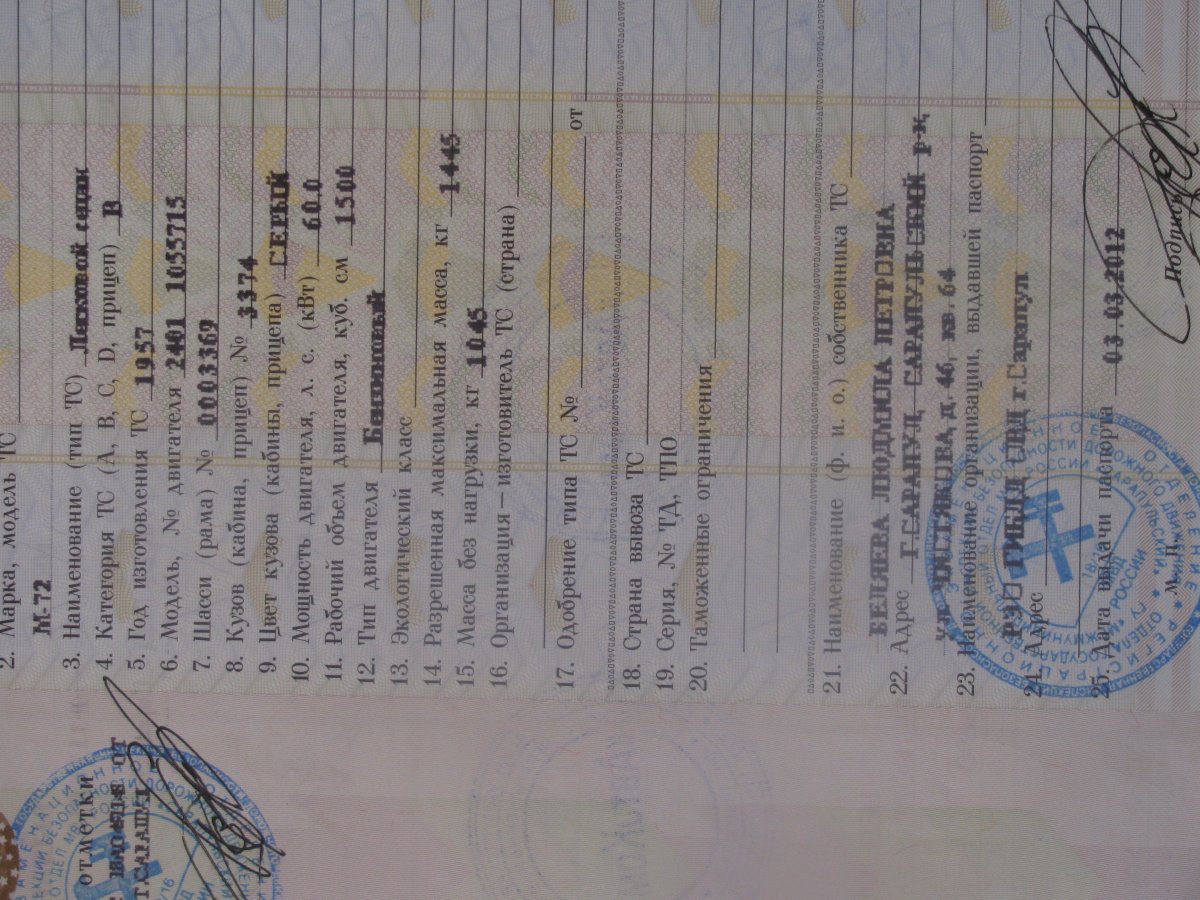 2. Марка, модель ТС
М-72
3. Наименование (тип ТС) Легковой седан
4. Категория ТС (А, В, С, D, прицеп) В
5. Год изготовления ТС 1957
6. Модель, № двигателя 2401 1055715
7. Шасси (рама) № 0003369
8. Кузов (кабина, прицеп) № 3374
9. Цвет кузова (кабины, прицепа) СЕРЫЙ
10. Мощность двигателя, л. с. (кВт) 60.0
11. Рабочий объем двигателя, куб. см 1500
12. Тип двигателя Бензиновый
13. Экологический класс
14. Разрешенная максимальная масса, кг 1445
15. Масса без нагрузки, кг 1045
16. Организация — изготовитель ТС (страна)
17. Одобрение типа ТС № от
18. Страна вывоза ТС
19. Серия, № ТД, ТПО
20. Таможенные ограничения
21. Наименование (ф. и. о.) собственника ТС
ЛЮДМИЛА ПЕТРОВНА
22. Адрес Г.САРАПУЛ, САРАПУЛЬСКИЙ р-н,
д. 46, кв. 64
23. Наименование организации, выдавшей паспорт
РЭО ГИБДД ОВД г.Сарапул
24. Адрес
25. Дата выдачи паспорта 03.03.2012
М. П. Подпись
отметки
от
Г.САРАПУЛ